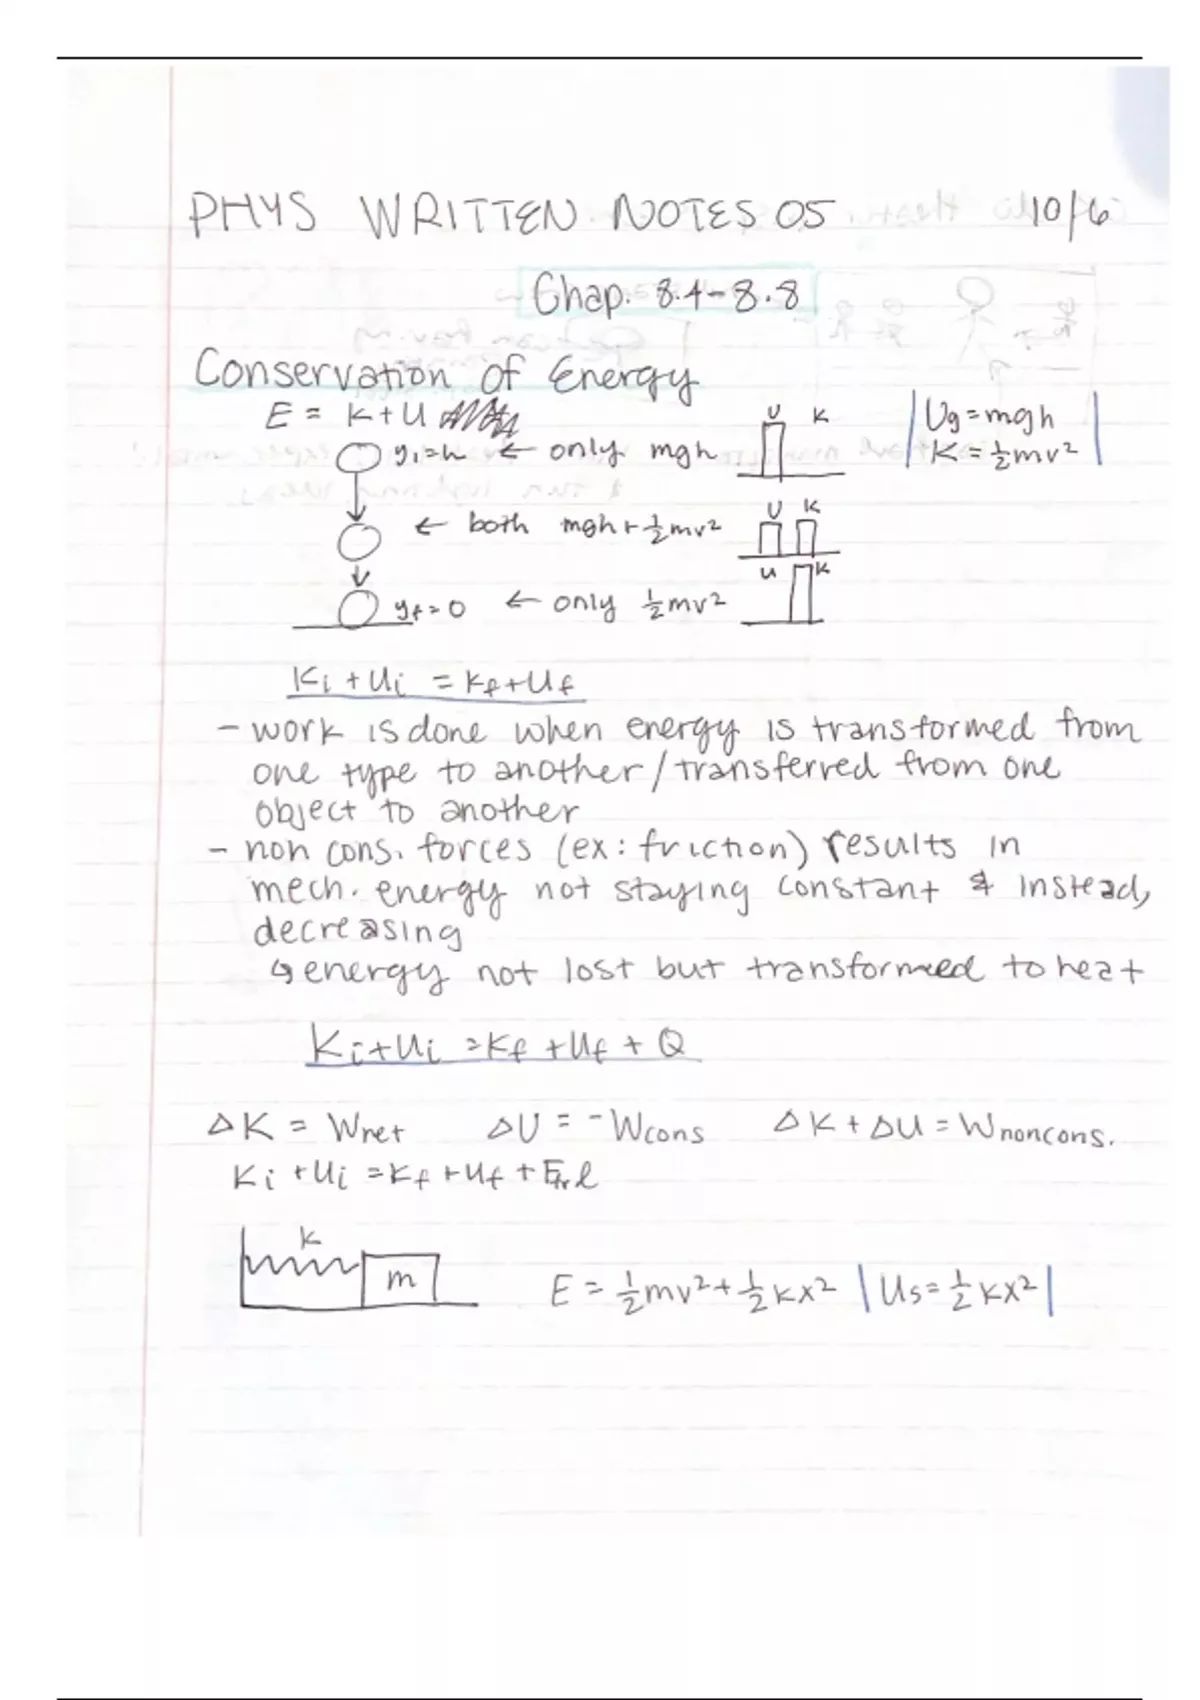 PHYS WRITTEN NOTES 05 10/6
Chap. 8.4-8.8
Conservation of Energy
E = K+U
y₁=h ← only mgh U K
|Ug=mgh|
|K=½mv²|
← both mgh+½mv² U K
yf=0 ← only ½mv² U K
Ki+Ui = Kf+Uf
- work is done when energy is transformed from
one type to another/transferred from one
object to another
- non cons. forces (ex: friction) results in
mech. energy not staying constant & instead,
decreasing
↳ energy not lost but transformed to heat
Ki+Ui =Kf+Uf+Q
ΔK = Wnet ΔU = -Wcons ΔK+ΔU=Wnoncons.
Ki+Ui=Kf+Uf+
K
m
E = ½mv²+½kx² |Us=½kx²|